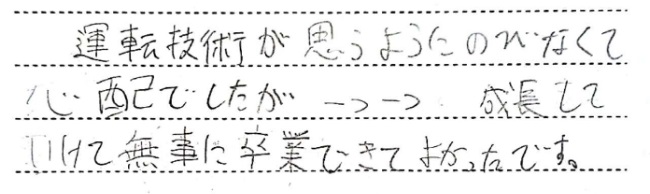 運転技術が思うようにのびなくて
心配でしたが一つ一つ成長して
いけて無事に卒業できてよかったです。